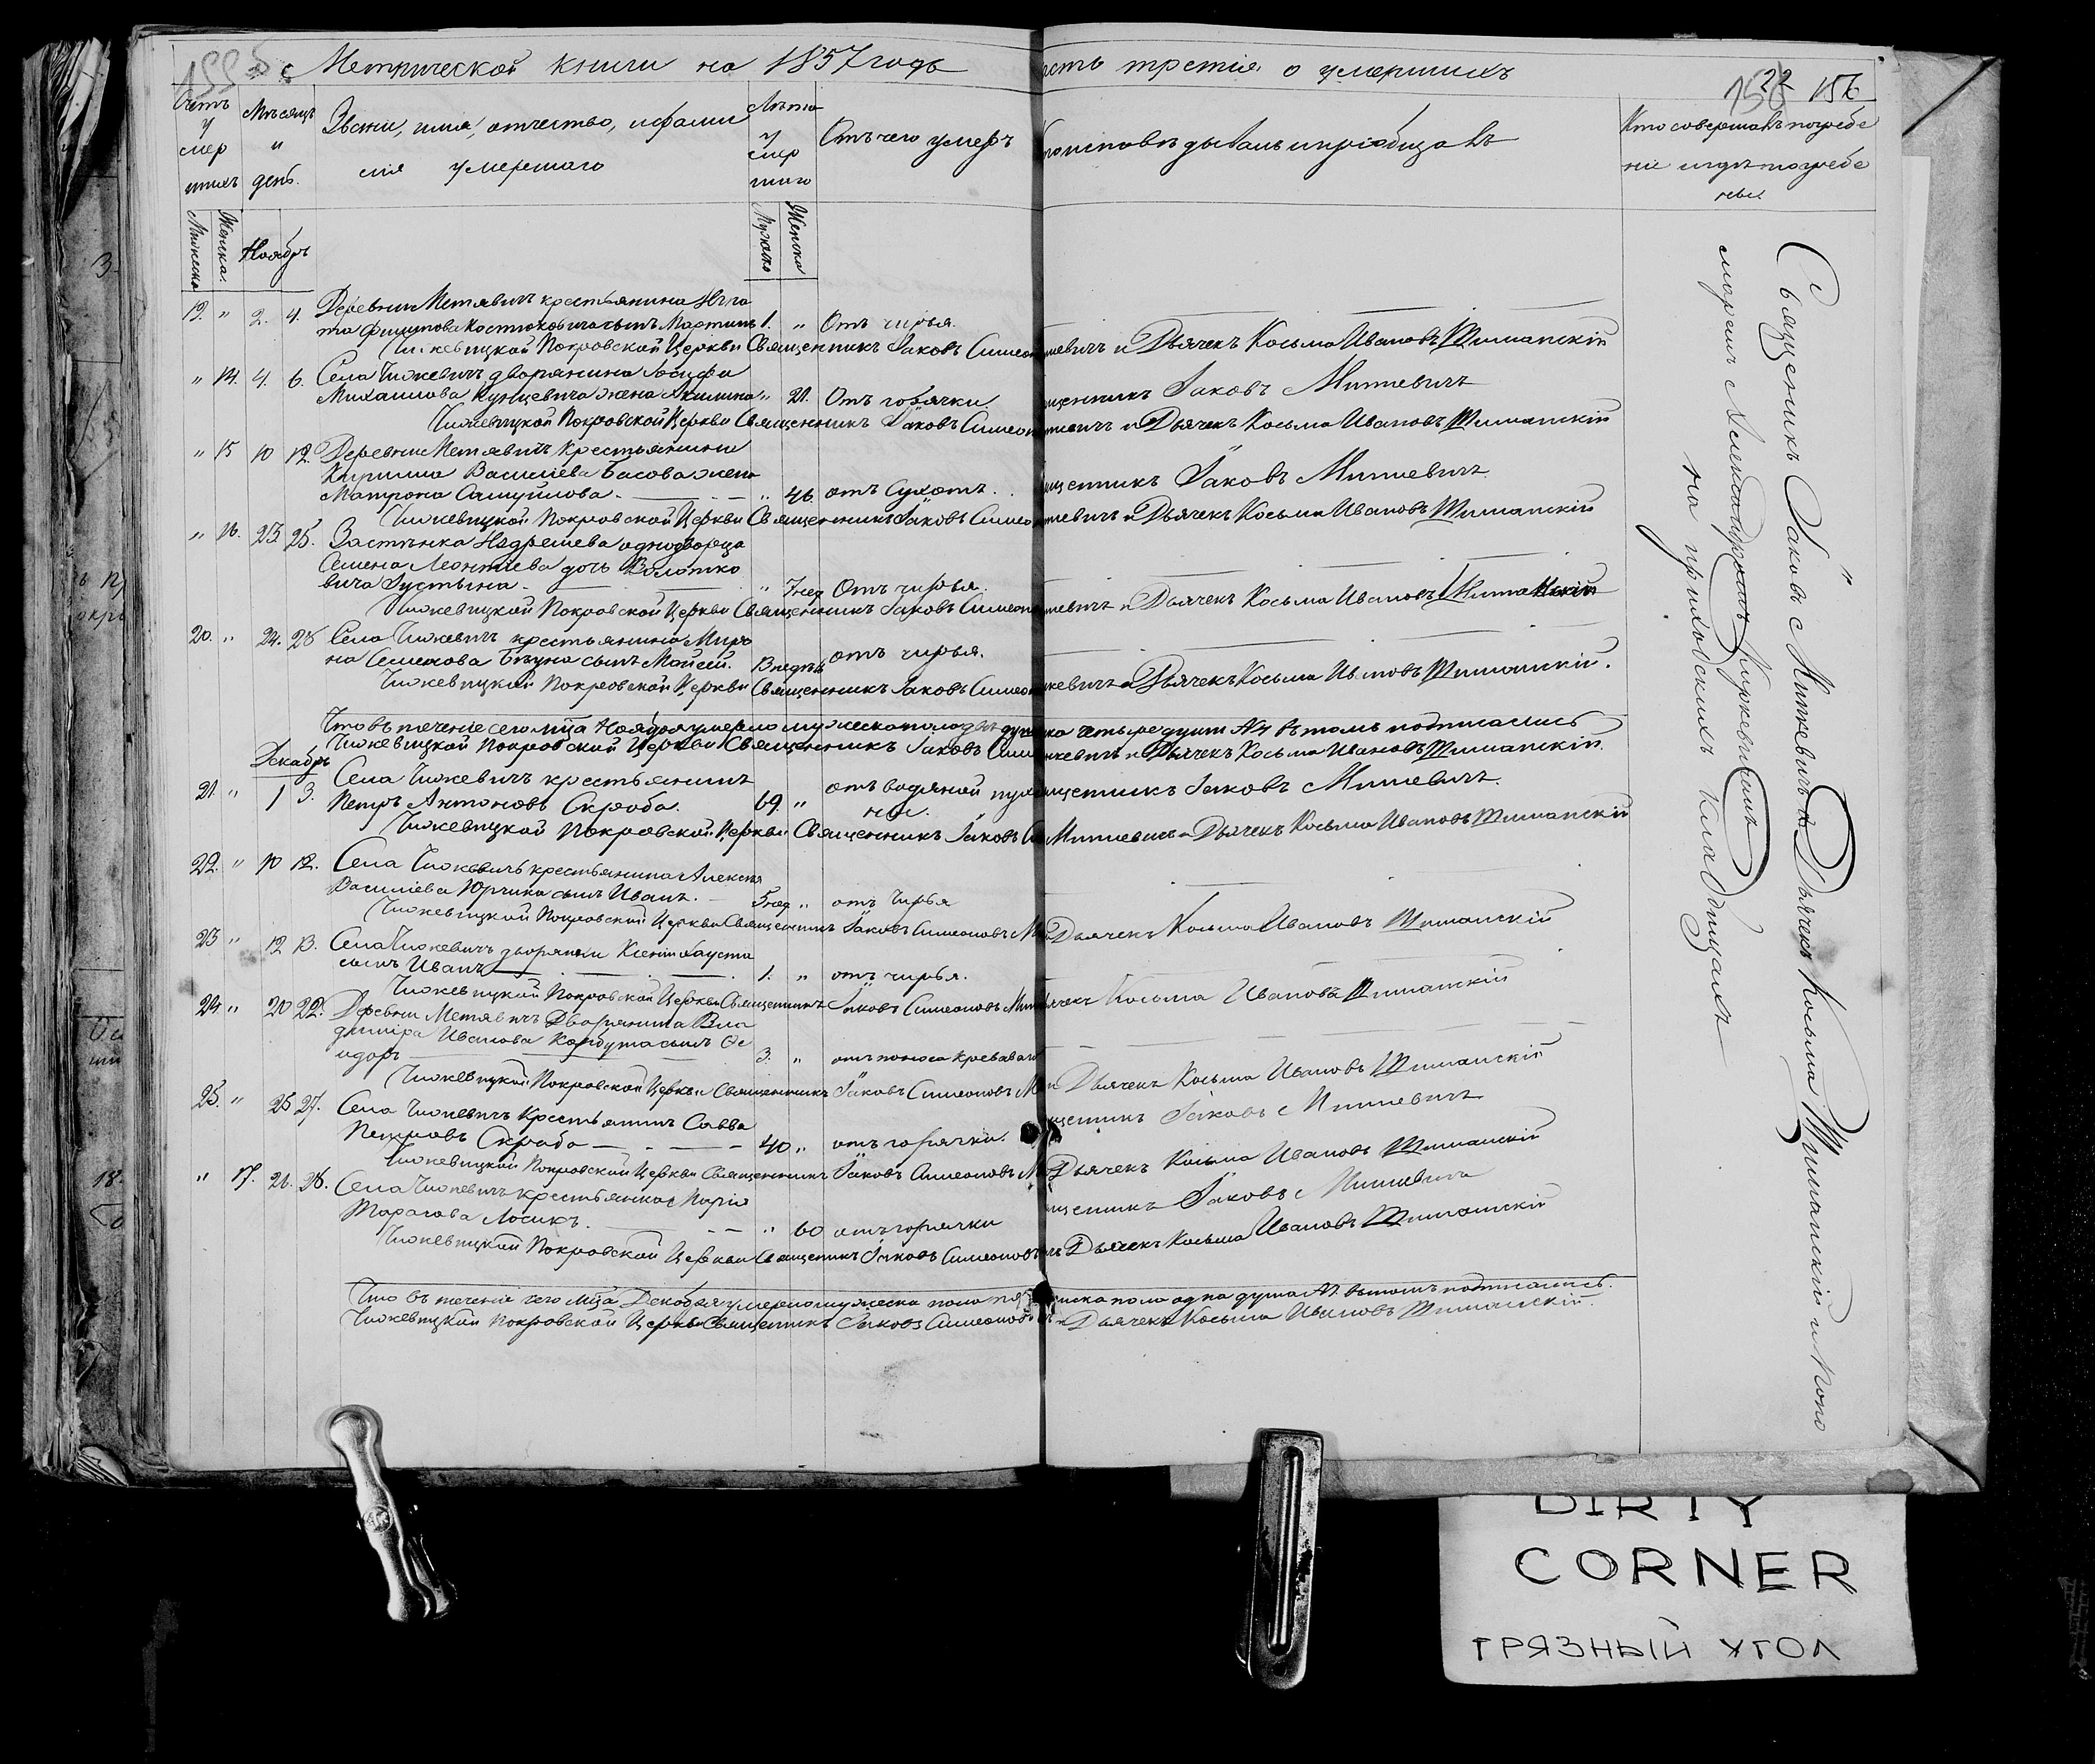 Метрической книги на 1857 годъ
третія о умершихъ
22 156
Счетъ умершихъ
Мѣсяцъ и день
Званіе, имя, отчество, и фамилія умершаго
Лѣта умершаго
Отъ чего умеръ
исповѣдывалъ и пріобщалъ
Кто совершалъ погребеніе и гдѣ погребены
Мужеска Женска Ноябрь Мужска Женска
19. " 2. 4. Деревни Метявичъ крестьянина
Филипова Костюковича сынъ Мартинъ 1. " Отъ чирья.
Чижевицкой Покровской Церкви Священникъ Іаковъ Симеон и Дьячекъ Косьма Ивановъ Шиманскій
" 14. 4. 6. Села Чижевичъ дворянина Іосифа
Михаилова Кунцевича жена Акилина " 21. Отъ горячки Священникъ Іаковъ Минкевичъ
Чижевицкой Покровской Церкви Священникъ Іаковъ Симеон и Дьячекъ Косьма Ивановъ Шиманскій
" 15 10 12. Деревни Метявичъ Крестьянина
Кирилла Василіева Басова жена
Матрона Самуйлова. " 46 отъ Сухотъ. Священникъ Іаковъ Минкевичъ
Чижевицкой Покровской Церкви Священникъ Іаковъ Симеон и Дьячекъ Косьма Ивановъ Шиманскій
" 16. 23 25. Застѣнка однодворца
Семена Леонтіева дочь
вича Іустына " 7 нед Отъ чирья.
Чижевицкой Покровской Церкви Священникъ Іаковъ Симеон и Дьячекъ Косьма Ивановъ Шиманскій
20. " 24. 26 Села Чижевичъ крестьянина Миро
на Семенова сынъ Моисей. 3 недѣль отъ чирья.
Чижевицкой Покровской Церкви Священникъ Іаковъ Симеон и Дьячекъ Косьма Ивановъ Шиманскій.
Что въ теченіе сего мца Ноября умерло мужеска пола двѣ четыре души №4 въ томъ подписались
Чижевицкой Покровской Церкви Священникъ Іаковъ и Дьячекъ Косьма Ивановъ Шиманскій.
Декабрь
21. " 1 3. Села Чижевичъ крестьянинъ
Петръ Антоновъ Скроба. 69. " отъ водяной Священникъ Іаковъ Минкевичъ.
Чижевицкой Покровской Церкви Священникъ Іаковъ Минкевичъ и Дьячекъ Косьма Ивановъ Шиманскій
22. " 10 12. Села Чижевичъ крестьянина Алексея
Василіева Юрчика сынъ Иванъ. 5 нед " отъ чирья
Чижевицкой Покровской Церкви Священникъ Іаковъ Симеоновъ Дьячекъ Косьма Ивановъ Шиманскій
23 " 12 13. Села Чижевичъ дворянки Ксеніи
сынъ Иванъ 1. " отъ чирья.
Чижевицкой Покровской Церкви Священникъ Іаковъ Симеоновъ Дьячекъ Косьма Ивановъ Шиманскій
24. " 20 22. Деревни Метявичъ Дворянина Вла
диміра Иванова Корбута сынъ Ис
идоръ 3. " отъ поноса кроваваго
Чижевицкой Покровской Церкви Священникъ Іаковъ Симеоновъ и Дьячекъ Косьма Ивановъ Шиманскій
25. " 25 27. Села Чижевичъ Крестьянинъ Савва
Петровъ Скроба 40 " отъ горячки. Священникъ Іаковъ Минкевичъ
Чижевицкой Покровской Церкви Священникъ Іаковъ Симеоновъ Дьячекъ Косьма Ивановъ Шиманскій
" 17. 26. 28. Села Чижевичъ крестьянка Марія
Тарасова Лосикъ. " 60 отъ горячки Священникъ Іаковъ Минкевичъ
Чижевицкой Покровской Церкви Священникъ Іаковъ Симеоновъ Дьячекъ Косьма Ивановъ Шиманскій
Что въ теченіе сего мца Декабря умерло мужеска пола женска пола одна душа №1 въ томъ подписались.
Чижевицкой Покровской Церкви Священникъ Іаковъ Симеоновъ и Дьячекъ Косьма Ивановъ Шиманскій.
Священникъ Іаковъ Минкевичъ и Дьячекъ Косьма Шиманскій и Поно
маремъ Киркевичемъ
на приходскихъ кладбищахъ
DIRTY
CORNER
ГРЯЗНЫЙ УГОЛ